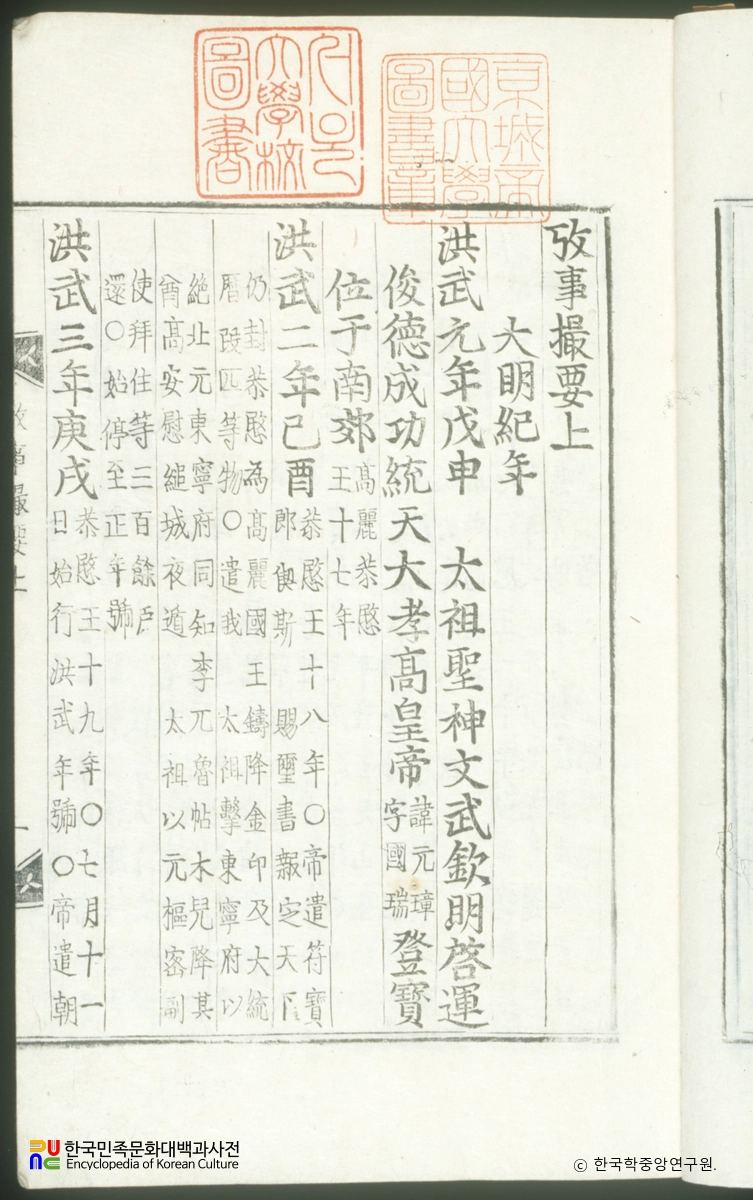 서울
大學校
圖書
京城帝
國大學
圖書章
攷事撮要上
大明紀年
洪武元年戊申 太祖聖神文武欽明啓運
俊德成功統天大孝高皇帝
諱元璋
字國瑞
登寶
位于南郊
高麗恭愍
王十七年
洪武二年己酉
恭愍王十八年○帝遣符寶
郎偰斯 賜璽書報定天下
仍封恭愍為高麗國王鑄降金印及大統
曆段匹等物○遣我 太祖擊東寧府以
絶北元東寧府同知李兀魯帖木兒降其
酋高安慰縋城夜遁 太祖以元樞密副
使拜住等三百餘戶
還○始停至正年號
洪武三年庚戌
恭愍王十九年○七月十一
日始行洪武年號○帝遣朝
攷事撮要上
一
한국민족문화대백과사전
Encyclopedia of Korean Culture
© 한국학중앙연구원.